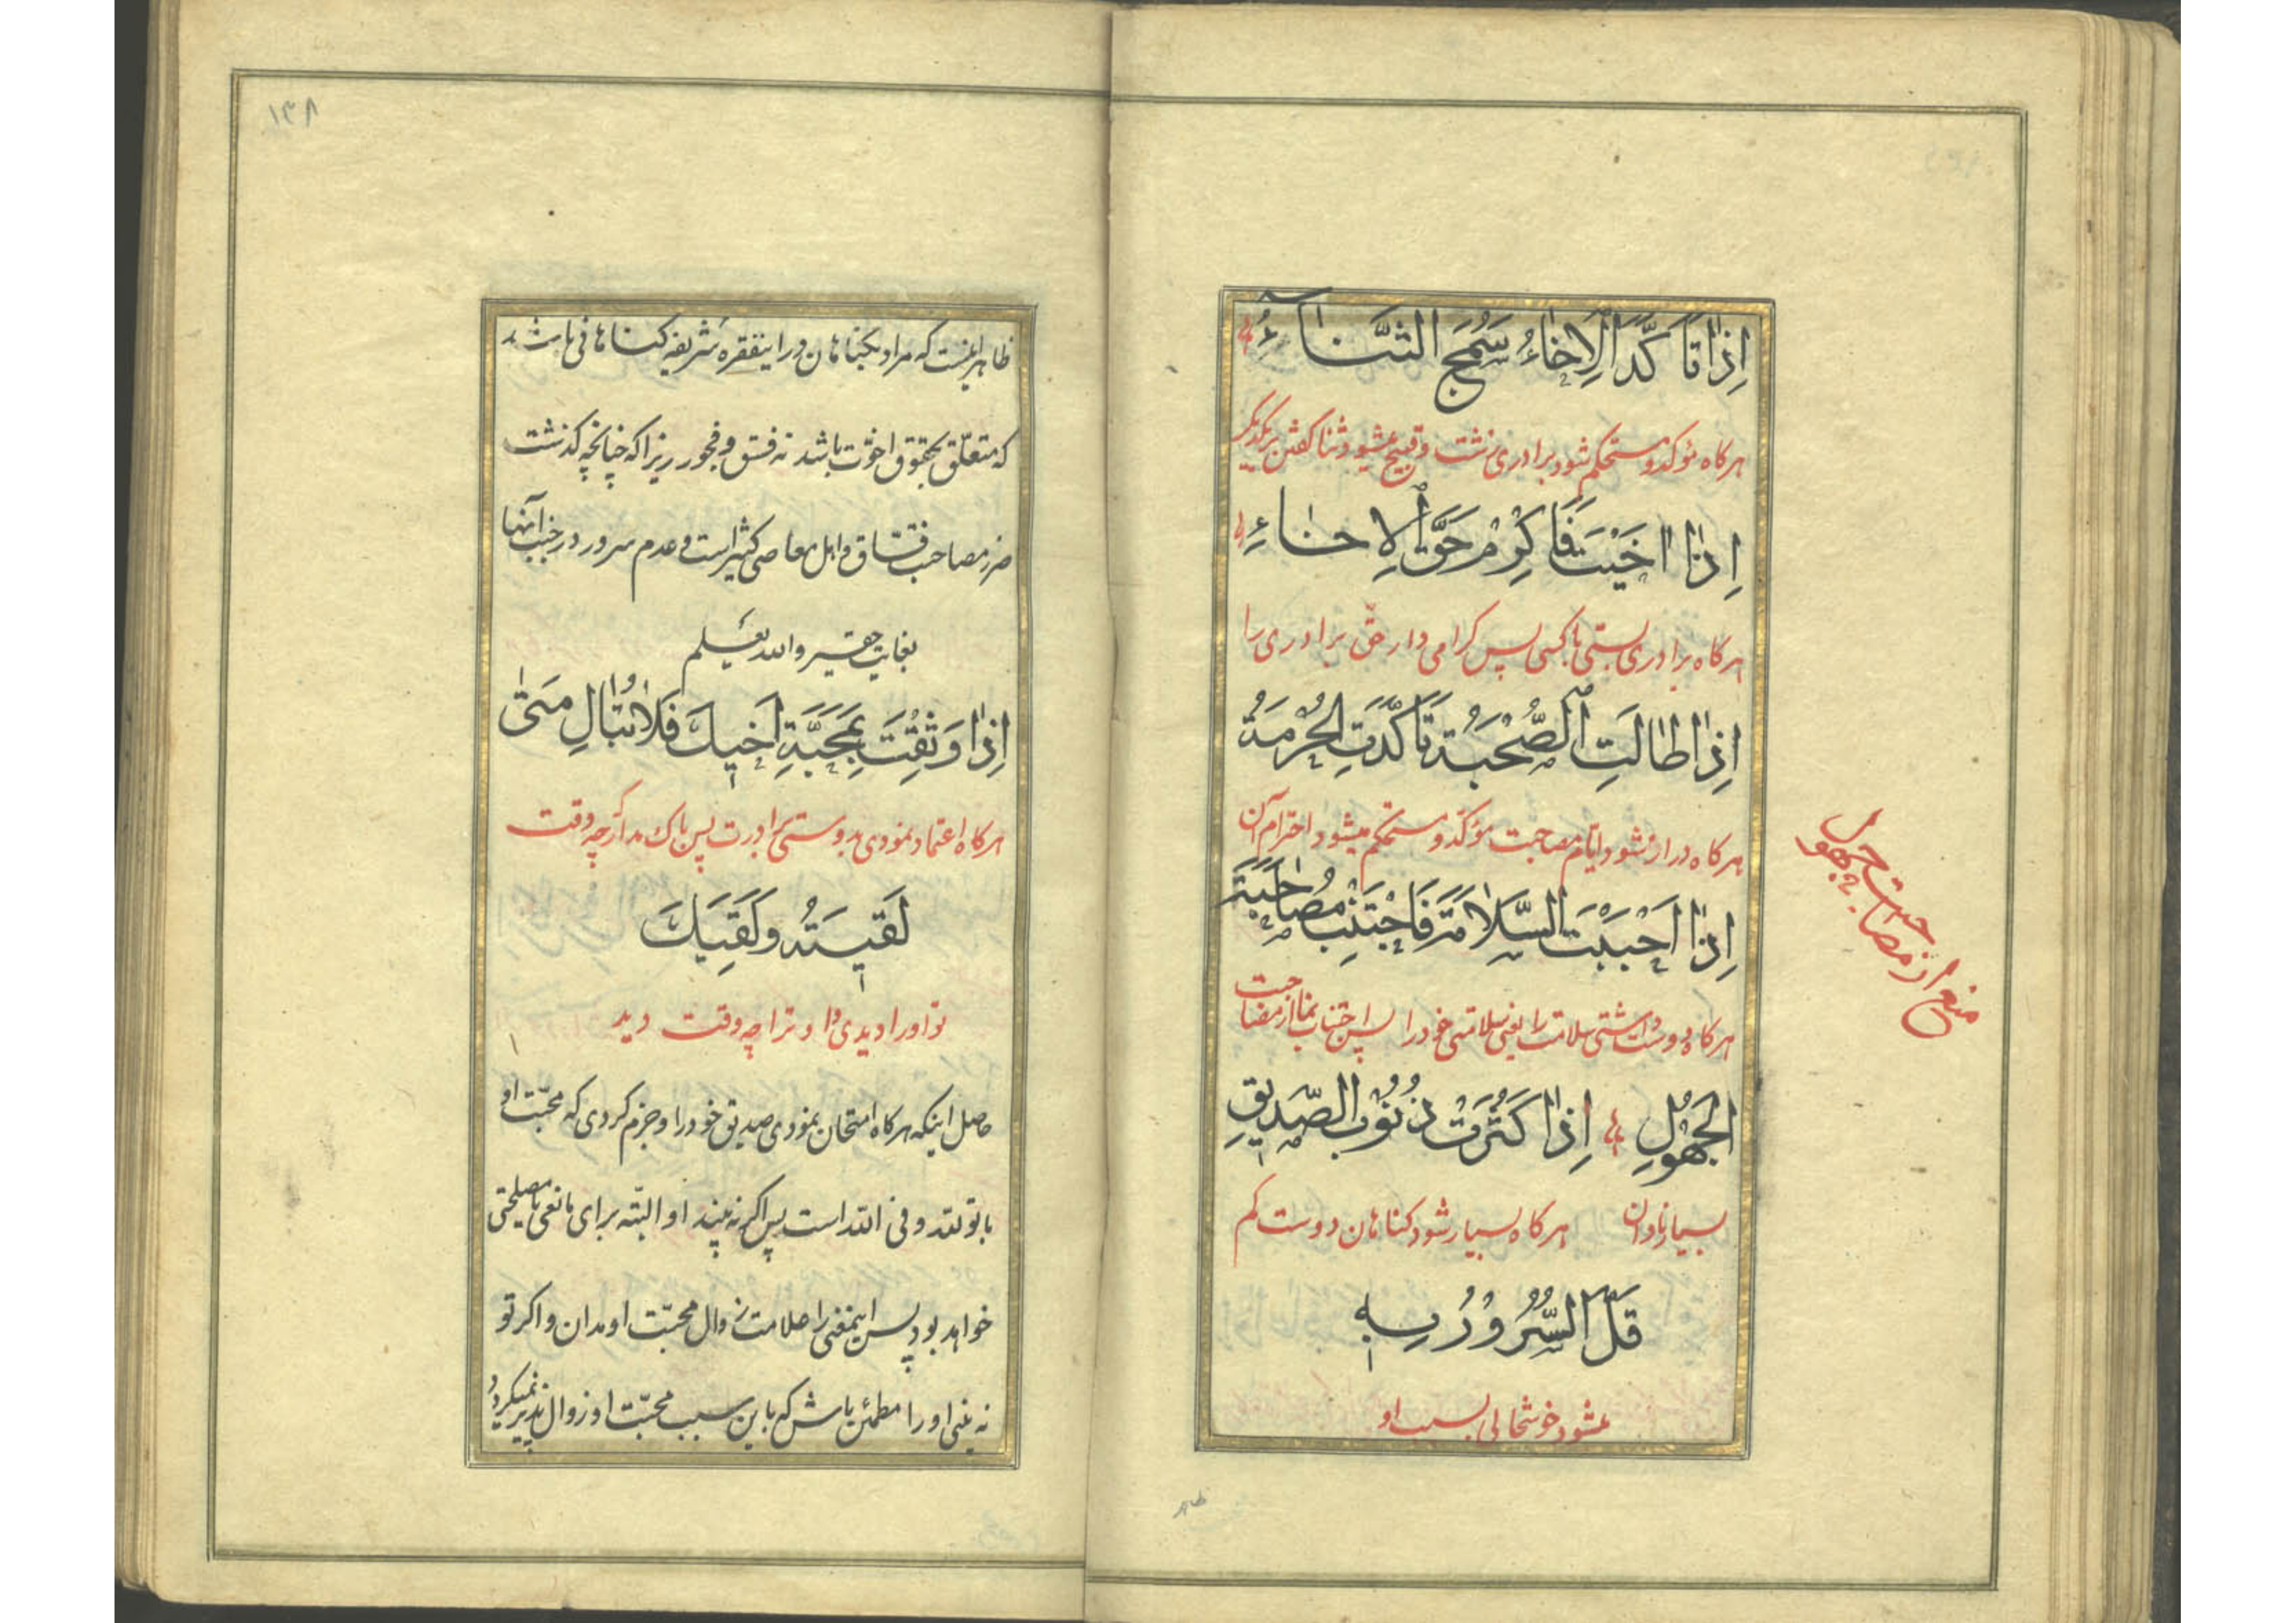 اِذٰا تَاَكَّدَ الْاِخٰاءُ سَمُجَ الثَّنٰاءُ
هركاه مؤكد و مستحكم شود برادرى زشت و قبيح ميشود ثنا كفتن بر يكديكر
اِذٰا اٰخَيْتَ فَاَكْرِمْ حَقَّ الْاِخٰاءِ
هركاه برادرى بستى با كسى پس كرامى دار حقّ برادرى را
اِذٰا طٰالَتِ الصُّحْبَةُ تَاَكَّدَتِ الْحُرْمَةُ
هركاه دراز شود ايّام مصاحبت مؤكّد و مستحكم ميشود احترام آن
اِذٰا اَحْبَبْتَ السَّلاٰمَةَ فَاجْتَنِبْ مُصٰاحَبَةَ
هركاه دوست داشتى سلامت را يعنى سلامتى خود را پس اجتناب نما از مصاحبت
الْجَهُولِ اِذٰا كَثُرَتْ ذُنُوبُ الصَّدِيقِ
بسيار نادان هركاه بسيار شود كناهان دوست كم
قَلَّ السُّرُورُ بِهِ
ميشود خوشحالى بسبب او
منع از مصاحبت جهول
ظاهر
١٣٨
ظاهر اينست كه مراد بكناهان در اينفقره شريفه كناهانى باشد
كه متعلّق بحقوق اخوّت باشد نه فسق و فجور زيرا كه چنانچه كذشت
ضرر مصاحب فسّاق و اهل معاصى كثير است و عدم سرور در جنب آنها
بغايت حقير والله يعلم
اِذٰا وَثِقْتَ بِمَحَبَّةِ اَخِيكَ فَلاٰ تُبٰالِ مَتىٰ
هركاه اعتماد نمودى بدوستى برادرت پس باك مدار كه چه وقت
لَقِيتَهُ وَ لَقِيَكَ
تو او را ديدى و او ترا چه وقت ديد
حاصل اينكه هركاه امتحان نمودى صديق خود را و جزم كردى كه محبّت او
با تو لله و فى الله است پس اكر نه بيند او البتّه براى مانعى يا مصلحتى
خواهد بود پس اينمعنى را علامت زوال محبّت او مدان و اكر تو
نه بينى او را مطمئن باش كه باين سبب محبّت او زوال پذير نميكردد